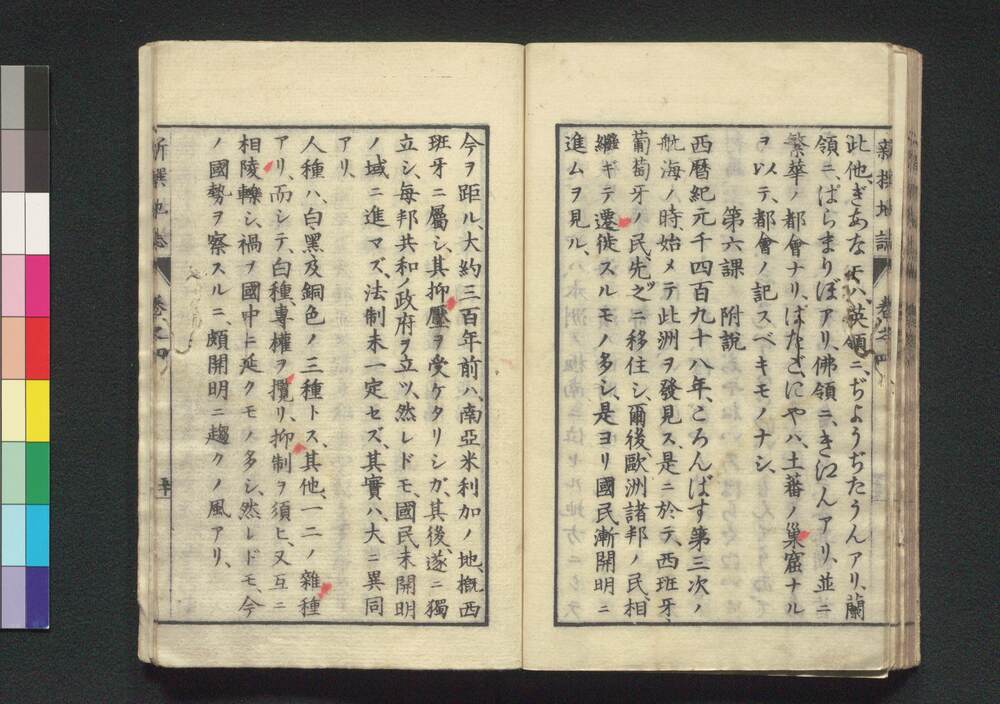 新撰地誌 卷之四
此他、ぎあなナハ、英領ニ、ぢようぢたうんアリ、蘭
領ニ、ぱらまりぼアリ、佛領ニ、きにんアリ、並ニ
繁華ノ都會ナリ、ぱたごにやハ、土蕃ノ巢窟ナル
ヲ以テ、都會ノ記スベキモノナシ、
第六課 附說
西曆紀元千四百九十八年、ころんばす第三次ノ
航海ノ時、始メテ此洲ヲ發見ス、是ニ於テ、西班牙、
葡萄牙ノ民、先之ニ移住シ、爾後、歐洲諸邦ノ民、相
繼ギテ遷徙スルモノ多シ、是ヨリ國民漸開明ニ
進ムヲ見ル、
今ヲ距ル、大約三百年前ハ、南亞米利加ノ地、概西
班牙ニ屬シ、其抑壓ヲ受ケタリシガ、其後、遂ニ獨
立シ、每邦共和ノ政府ヲ立ツ、然レドモ、國民未開明
ノ域ニ進マズ、法制未一定セズ、其實ハ、大ニ異同
アリ、
人種ハ、白、黑及銅色ノ三種トス、其他、一二ノ雜種
アリ、而シテ、白種、專權ヲ攬リ、抑制ヲ須ヒ、又互ニ
相陵轢シ、禍ヲ國中ニ延クモノ多シ、然レドモ、今
ノ國勢ヲ察スルニ、頗開明ニ趨クノ風アリ、
新撰地誌 卷之四 五十